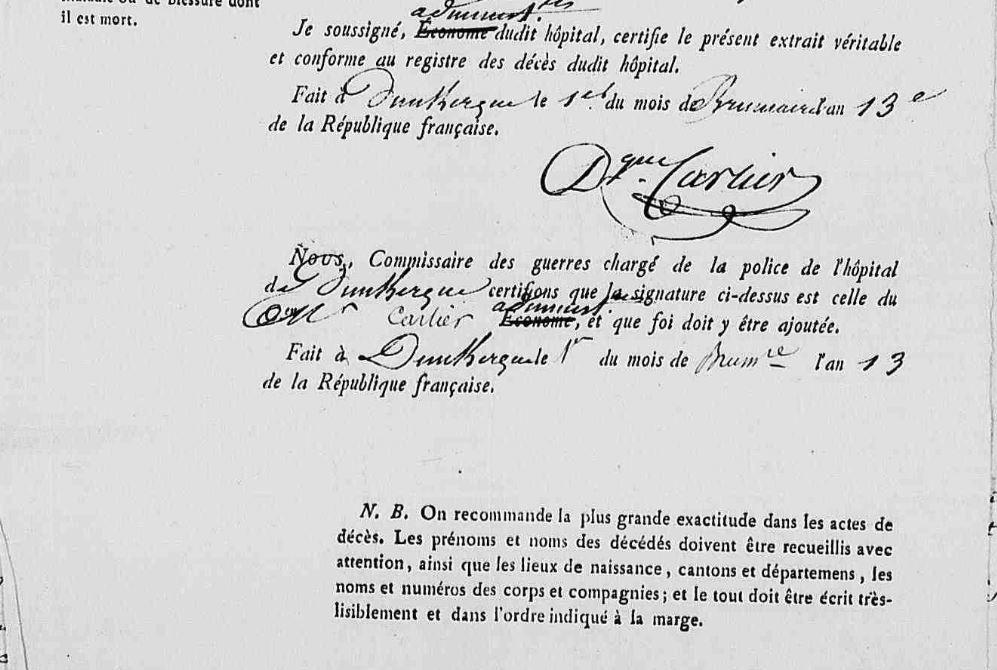 maladie ou de blessure dont
il est mort.
administ.
Je soussigné, Économe dudit hôpital, certifie le présent extrait véritable
et conforme au registre des décès dudit hôpital.
Fait à Dunkerque le 1er du mois de Brumaire l'an 13e
de la République française.
Dque Carlier
Nous, Commissaire des guerres chargé de la police de l'hôpital
de Dunkerque certifions que la signature ci-dessus est celle du
administ.
Carlier Économe, et que foi doit y être ajoutée.
Fait à Dunkerque le 1r du mois de Brumre l'an 13
de la République française.
N. B. On recommande la plus grande exactitude dans les actes de
décès. Les prénoms et noms des décédés doivent être recueillis avec
attention, ainsi que les lieux de naissance, cantons et départemens, les
noms et numéros des corps et compagnies; et le tout doit être écrit très-
lisiblement et dans l'ordre indiqué à la marge.